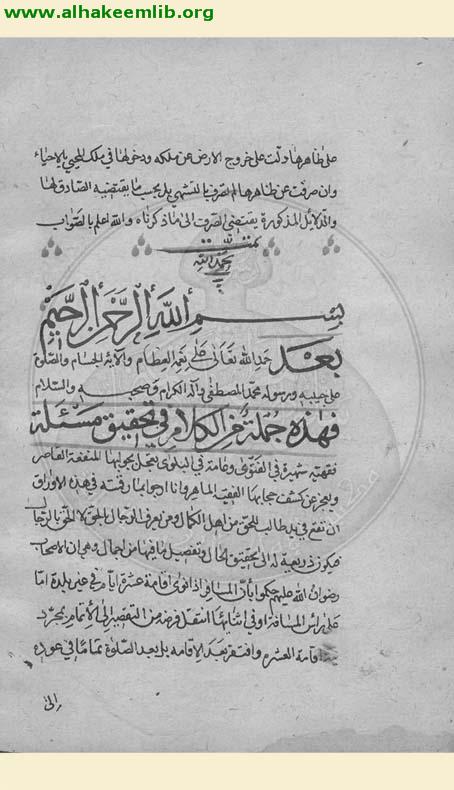 www.alhakeemlib.org
على ظاهرها دلت على خروج الارض عن ملكه ودخولها فى ملك المحيى بالاحياء
وان صرفت عن ظاهرها لم الصرف بالتشهى بل بحسب ما يقتضيه الصادق لها
والدلائل المذكورة يقتضى الصرف الى ما ذكرناه والله اعلم بالصواب
تمت
بحمد الله
بسم الله الرحمن الرحيم
بعد حمد الله تعالى على نعمه العظام والآئه الجسام والصلوة
على حبيبه ورسوله محمد المصطفى وآله الكرام وصحبه والسلام
فهذه جملة من الكلام فى تحقيق مسئلة
فقهية شهيرة فى الفتوى وعامة فى البلوى يعجل بجوابها المتفقه القاصر
ويعجز عن كشف حجابها الفقيه الماهر وانا ارجو ايما رفته فى هذه الاوراق
ان تقع فى يد طالب للحق من اهل الكمال ومن يعرف الرجال بالحق لا الحق بالرجال
فيكون ذريعة له الى تحقيق الحال وتفصيل ما فيها من اجمال وهى ان الاصحاب
رضوان الله عليهم حكموا بأن المسافر اذا نوى اقامة عشرة ايام فى غير بلده اما
على رأس المسافة او فى اثنائها انتقل فرضه من التقصير الى الاتمام بمجرد
اقامة العشره وافتقر بعد الاقامه بل بعد الصلوة تماما فى عوده
الى